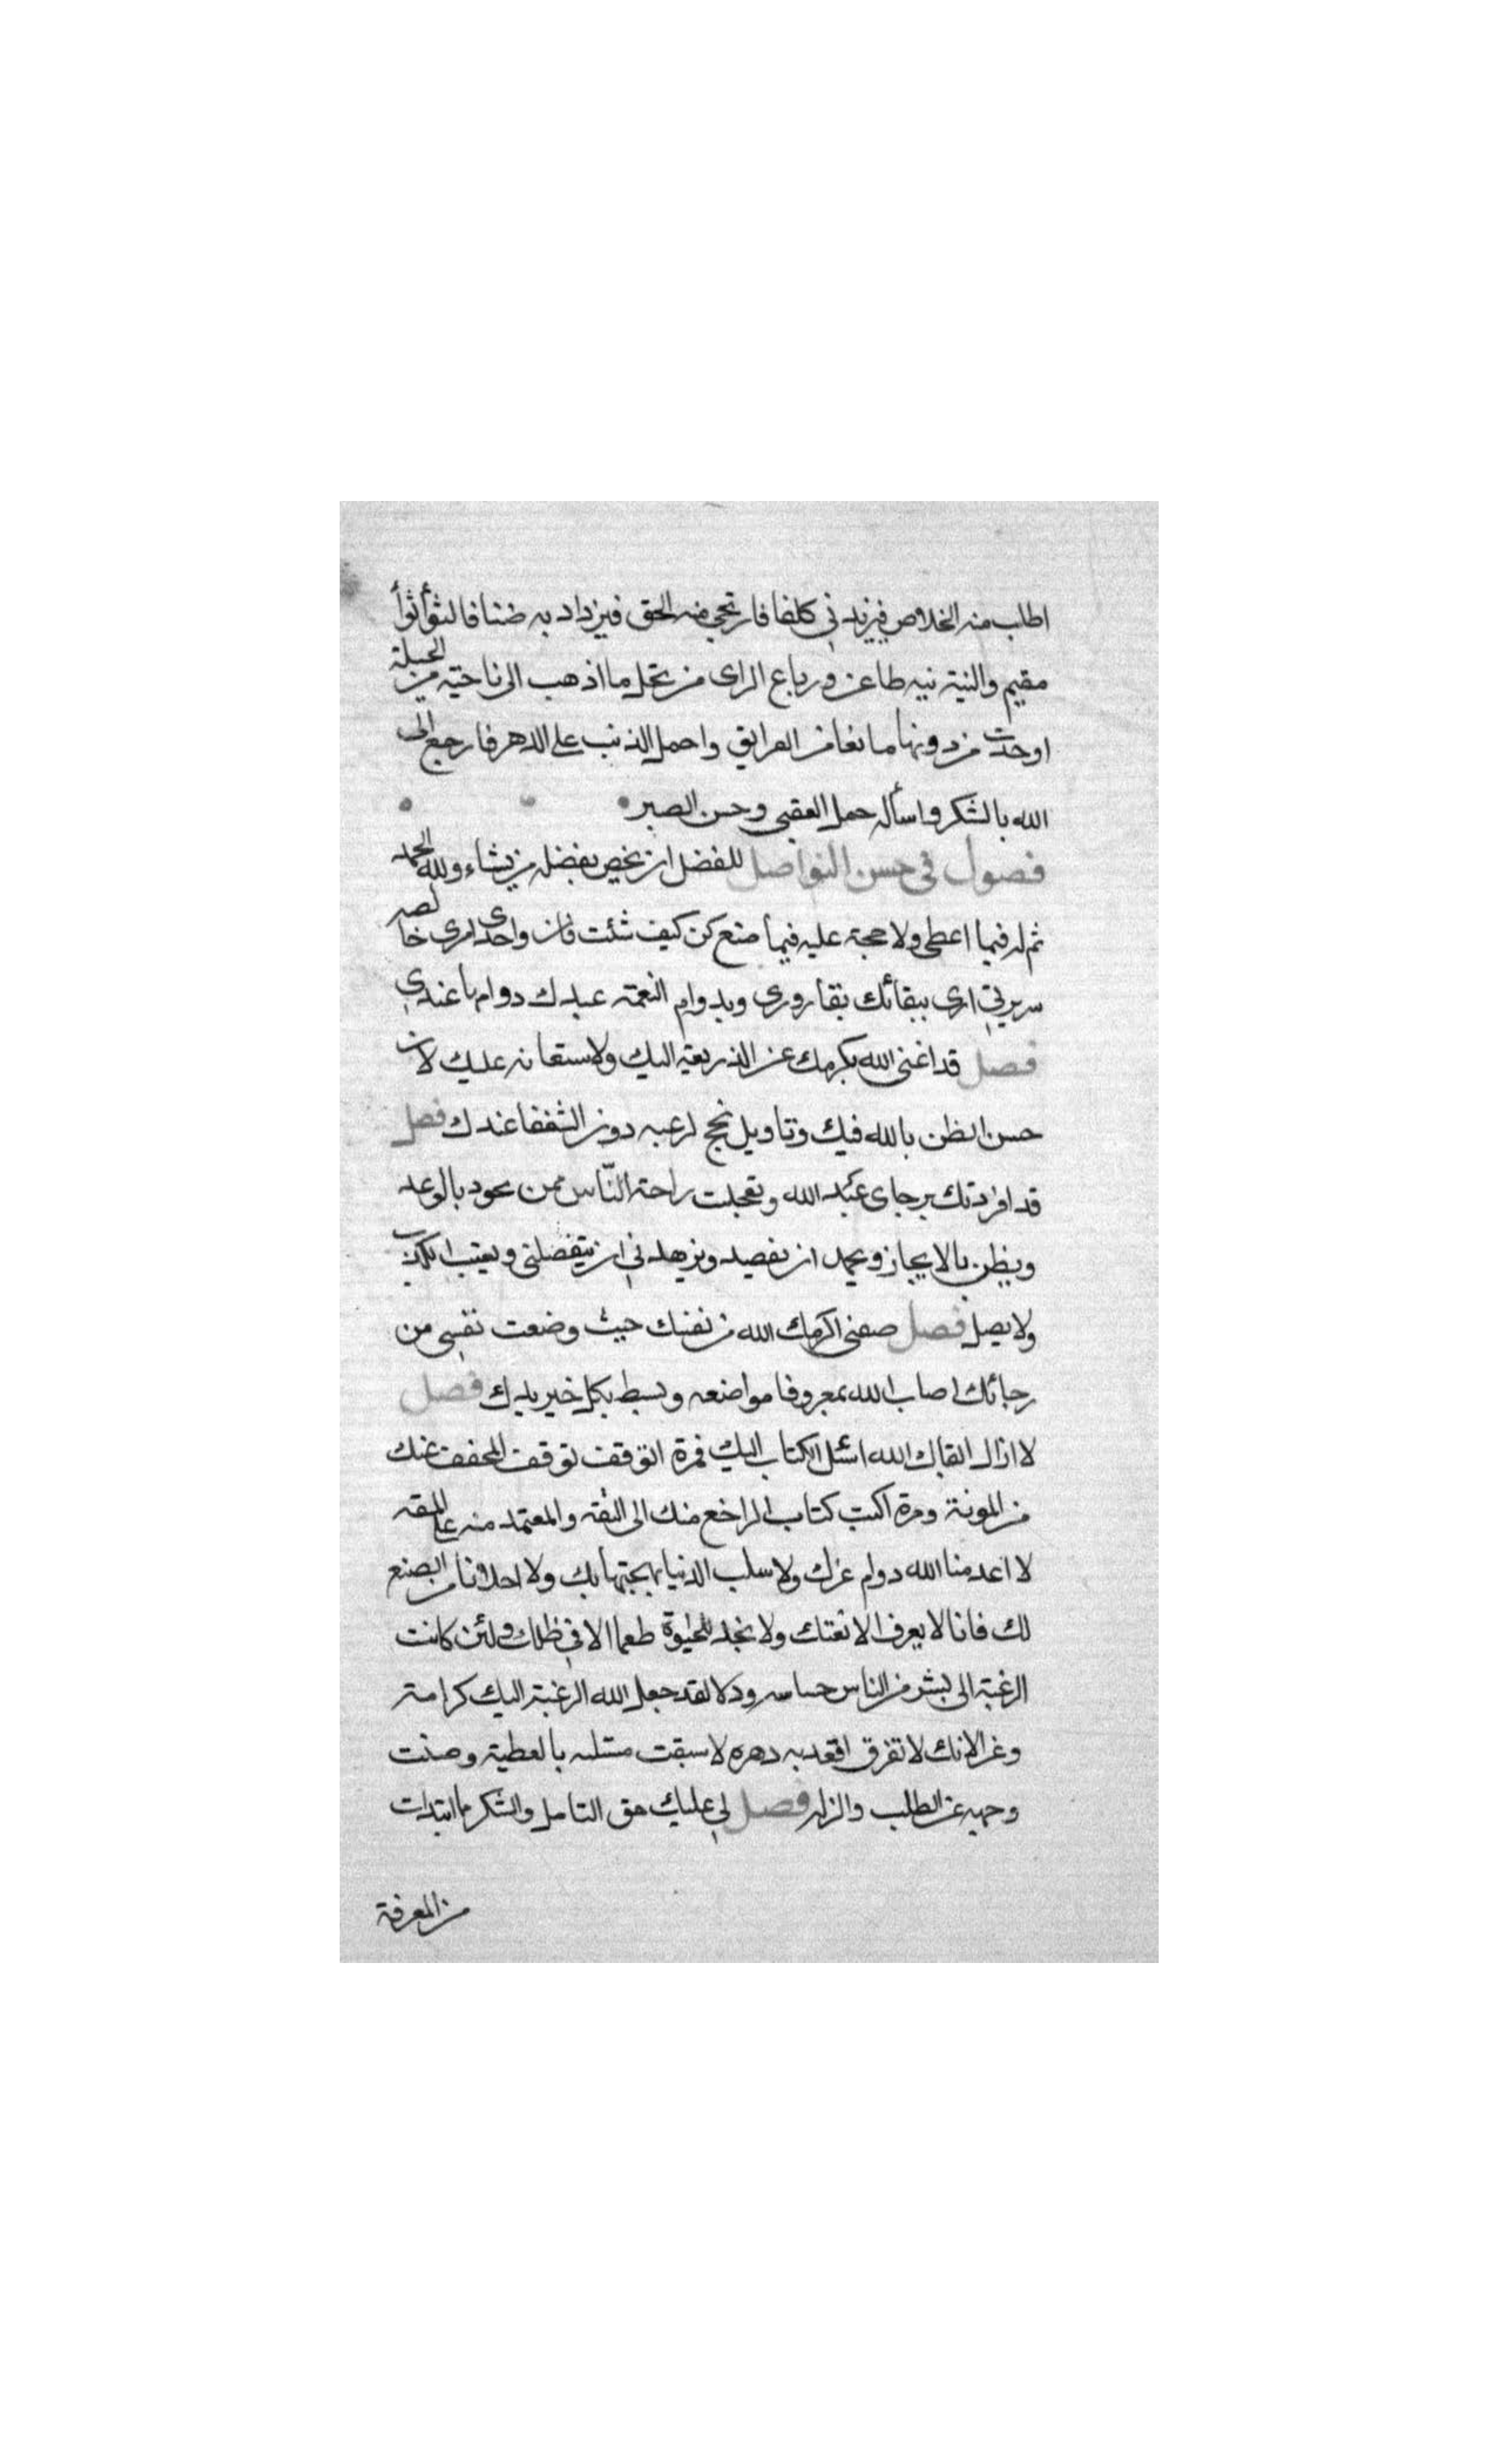 اطلب منه الخلاص فيزيدني كلفا فارتجي منه الحق فيزداد به ضنا فالثوأ ثوأ
مقيم والنية نيه طاعن ورباع الراى من تحل ما اذهب الى ناحية من الحيلة
اوحدت من دونها مانعا من العرايق واحمل الذنب على الدهر فارجع الى
الله بالشكر واسأله حمل العقبى وحسن الصبر
فصول في حسن التواصل للفضل ان يخص بفضله من يشاء ولله الحمد
ثم له فيما اعطى ولا حجة عليه فيما منع كن كيف شئت فان واحدى امرى خالصه
سريرتي ارى ببقائك بقا رورى وبدوام النعمة عبدك دوام ما عندي
فصل قد اغنى الله بكرمك عن الذريعة اليك ولاستعانه عليك لان
حسن الظن بالله فيك وتاويل نجح لرعبه دون الشفعا عندك فصل
قد افردتك برجاى عند الله وتعجلت راحة النّاس ممن يجود بالوعد
ويظن بالايجاز ويحمد ان يفصيد ويزهد ني ان يتفضلنى ويعتب الكذب
ولا يصل فصل صفنى اكرمك الله من نفسك حيث وضعت نفسي من
رجائك اصاب الله بمعروفا مواضعه وبسط بكل خير يديك فصل
لا ازال ابقاك الله اسئل الكتاب اليك فمرة اتوقف توقف المخفف عنك
من المونة ومرة اكتب كتاب الراجع منك الى الثقه والمعتمد منه على المقه
لا اعدمنا الله دوام عزك ولا سلب الدنيا بهجتها بك ولا اخلانا من الصنع
لك فانا لا يعرف الا نعتك ولا نجد للحيوة طعما الا في ظلك ولئن كانت
الرغبة الى بشر من الناس حساسه ودلا لقد جعل الله الرغبة اليك كرامة
وعز الانك لا تفرق اقعد به دهره لا سبقت مسئله بالعطية وصنت
وجهه عن الطلب والزله فصل لي عليك حق التامل والشكر ما ابتدات
من المعرفة